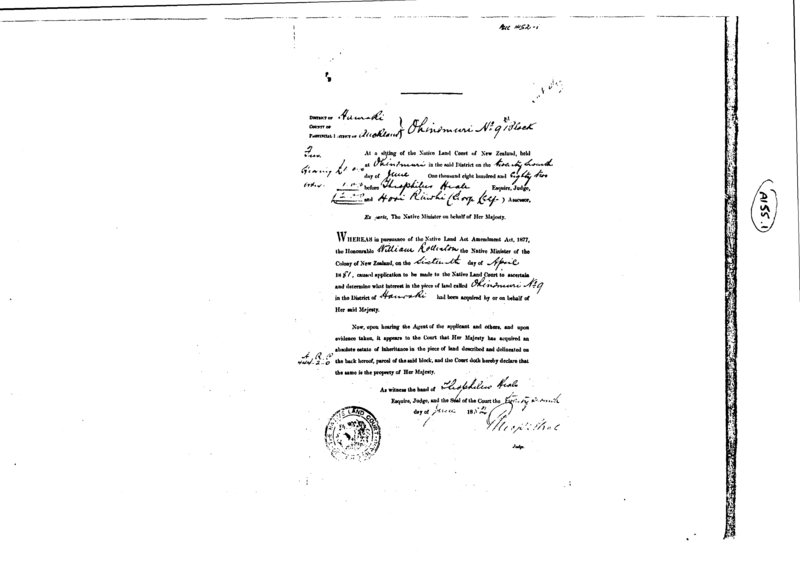 AUC 1452-1
DISTRICT OF Hauraki
COUNTY OF
PROVINCIAL DISTRICT OF Auckland } Ohinemuri No. 9 Block
At a sitting of the Native Land Court of New Zealand, held
at Ohinemuri in the said District on the
day of June One thousand eight hundred and Eighty two
before Theophilus Heale Esquire, Judge,
and Assessor,
Ex parte, The Native Minister on behalf of Her Majesty.
WHEREAS in pursuance of the Native Land Act Amendment Act, 1877,
the Honourable William Rolleston the Native Minister of the
Colony of New Zealand, on the Sixteenth day of April
1881, caused application to be made to the Native Land Court to ascertain
and determine what interest in the piece of land called Ohinemuri No 9
in the District of Hauraki had been acquired by or on behalf of
Her said Majesty.
Now, upon hearing the Agent of the applicant and others, and upon
evidence taken, it appears to the Court that Her Majesty has acquired an
absolute estate of Inheritance in the piece of land described and delineated on
the back hereof, parcel of the said block, and the Court doth hereby declare that
the same is the property of Her Majesty.
As witness the hand of Theophilus Heale
Esquire, Judge, and the Seal of the Court the
day of June 1882
Judge.
NATIVE LAND COURT
A155.1